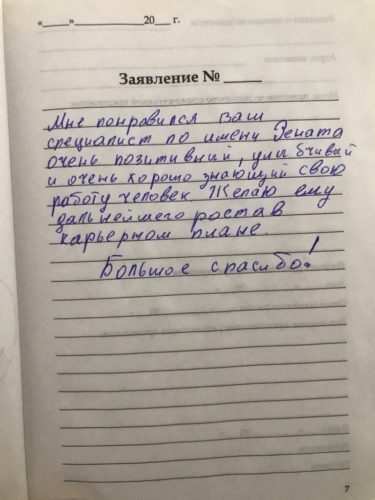 «____»____________20___ г.
Заявление № _____
Мне понравился ваш
специалист по имени Рената
очень позитивний, улыбчивый
и очень хорошо знающий свою
работу человек Желаю ему
дальнейшего роста в
карьерном плане.
Большое спасибо!
7